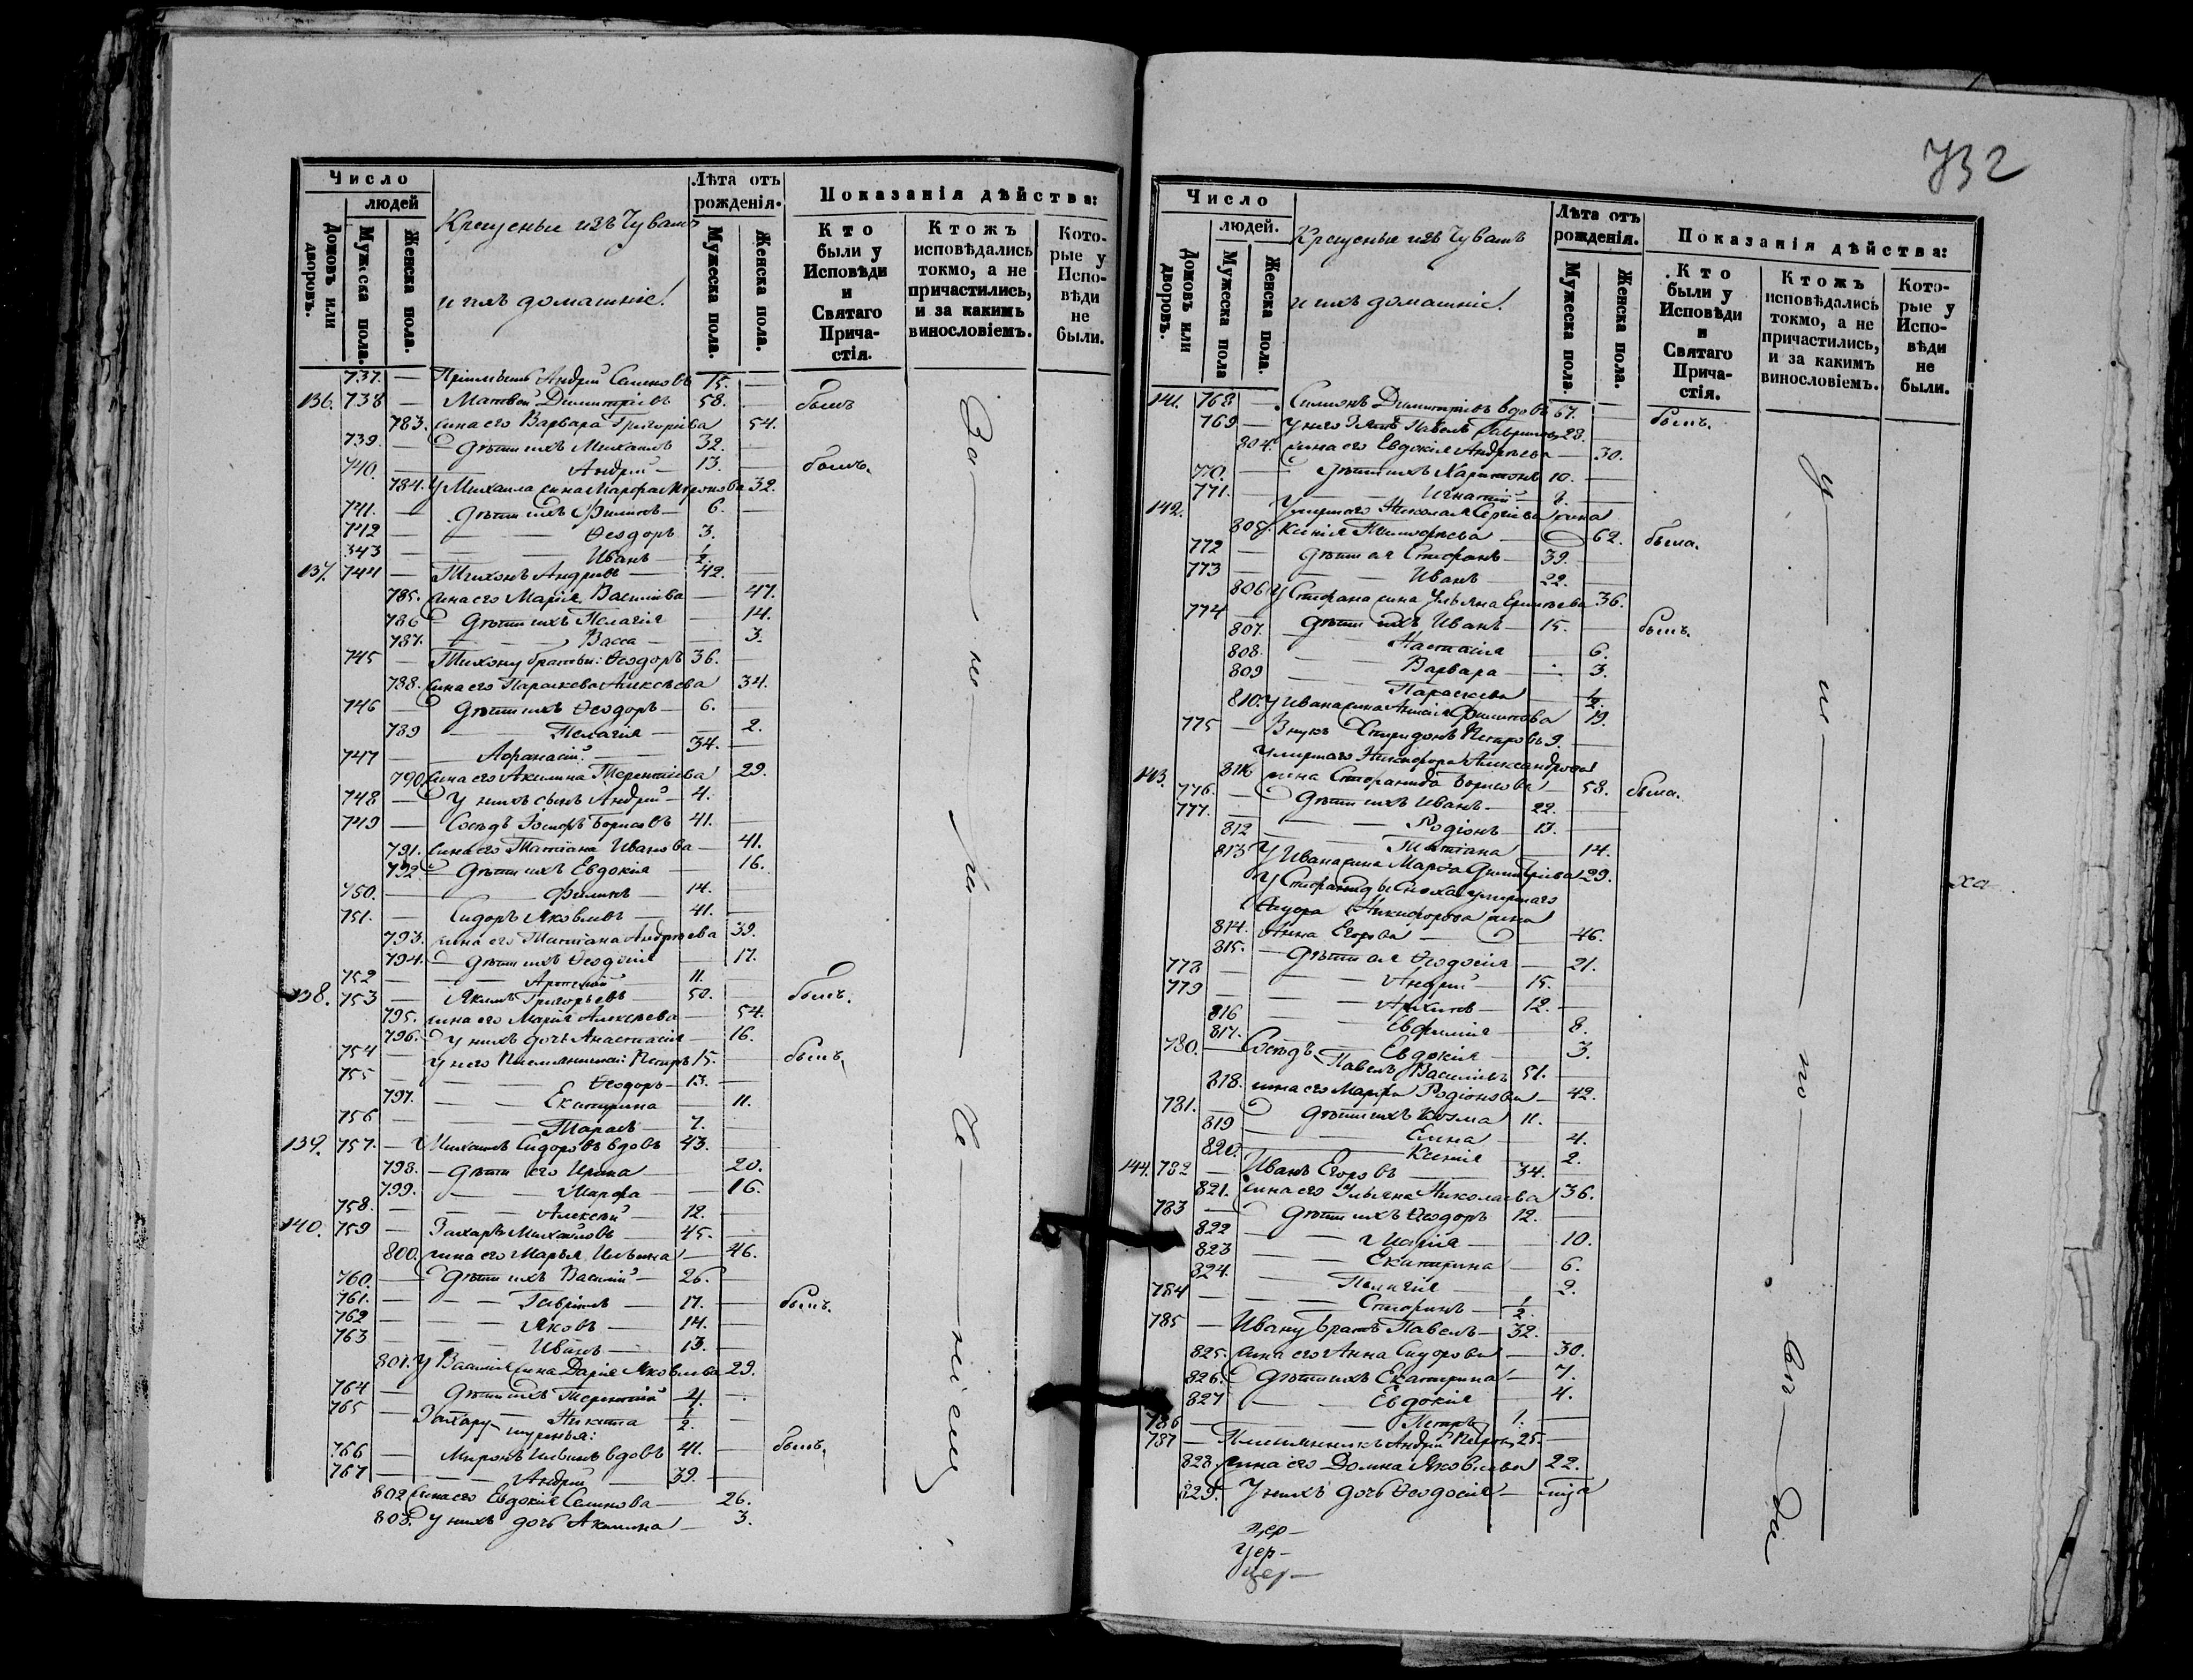 Число
людей
Домовъ или дворовъ.
Мужеска пола.
Женска пола.
Крещеные изъ Чувашъ
и ихъ домашніе.
Лѣта отъ рожденія.
Мужеска пола.
Женска пола.
Показанія дѣйства:
Кто были у Исповѣди и Святаго Причастія.
Ктожъ исповѣдались токмо, а не причастились, и за какимъ винословіемъ.
Которые у Исповѣди не были.
737. — Андрей Семеновъ 15. —
136. 738 — Матвей Димитріевъ 58. былъ
783. жена его Варвара Григорьева 54.
739. — Дѣти ихъ Михаилъ 32. —
740. — Андрей — 13. — былъ.
784. У Михаила жена Марфа 32.
741. — Дѣти ихъ Филипъ — 6. —
742 — Ѳеодоръ 3.
343 — Иванъ — 1/2.
137. 744 — Тихонъ Андреевъ — 42. —
785. жена его Марія Васильева — 47.
786 Дѣти ихъ Пелагія — 14.
787. — Васса — 3.
745 — Тихону братья: Ѳеодоръ 36. —
788. жена его Параскева Алексѣева 34.
746 — Дѣти ихъ Ѳеодоръ — 6. —
789 — Пелагія — 2.
747 — Афанасій — 34. —
790 жена его Акилина Терентіева 29.
748 — У нихъ сынъ Андрей — 4. —
749 — Сосѣдъ Борисовъ 41. —
791. жена его Татіана Иванова — 41.
792. — Дѣти ихъ Евдокія — 16.
750. — Филипъ — 14. —
751. — Сидоръ Яковлевъ — 41. —
793. жена его Татіана Андреева 39.
794. — Дѣти ихъ Ѳеодосія — 17.
752 — 11. —
138. 753 — Якимъ Григорьевъ — 50. — былъ.
795. жена его Марія Алексѣева — 54.
796. У нихъ дочь Анастасія — 16.
754 — У него племянники: Петръ 15. — былъ.
755 — Ѳеодоръ — 13. —
797. — Екатерина — 11.
756 — Тарасъ — 7. —
139. 757. — Михаилъ Сидоровъ вдовъ 43. —
798. — Дѣти его Ирина — 20.
799. — Марфа — 16.
758. — Алексѣй — 12. —
140. 759 — Захаръ Михайловъ — 45. —
800. жена его Марья Ильина — 46.
760. — Дѣти ихъ Василій — 26.
761. — Гаврилъ — 17. — былъ.
762 — Яковъ — 14. —
763 — Иванъ — 13. —
801. У Василія жена Дарія Яковлева 29.
764 — Дѣти ихъ Терентій 4. —
765 — Никита 1/2. —
Захару шурья:
766 — Миронъ Ильинъ вдовъ 41. — былъ.
767 — Андрей — 39. —
802 жена его Евдокія Семенова — 26.
803. У нихъ дочь Акилина — 3.
732
Число
людей.
Домовъ или дворовъ.
Мужеска пола
Женска пола.
Крещеные изъ Чувашъ
и ихъ домашніе.
Лѣта отъ рожденія.
Мужеска пола.
Женска пола.
Показанія дѣйства:
Кто были у Исповѣди и Святаго Причастія.
Ктожъ исповѣдались токмо, а не причастились, и за какимъ винословіемъ.
Которые у Исповѣди не были.
141. 768 — Симіонъ Димитріевъ вдовъ 67. — былъ.
769 — У него зять Павелъ 28. —
804. жена его Евдокія Андреева — 30.
770. — Дѣти ихъ Харитонъ 10. —
771. — Игнатій —
142. Умершаго Николая Сергіева жена
805. Ксенія Тимофѣева — 62. была.
772 — Дѣти ея Стефанъ — 39. —
773 — Иванъ — 22. —
806 У Стефана жена Ульяна 36.
774 — Дѣти ихъ Иванъ — 15. — былъ.
807. Настасія — 6.
808. Варвара — 3.
809 Параскева — 1/2.
810. У Ивана жена Филипова 19.
775 — Внукъ Спиридонъ Петровъ 9. —
143. Умершаго Никифора Александрова
811 жена Степанида Борисова — 58. была.
776. — Дѣти ихъ Иванъ — 22. —
777. — Родіонъ — 13. —
812 — Татіана — 14.
813 У Ивана жена Марфа Димитріева 29.
У Степаниды сноха умершаго
Никифорова жена
814. Анна Егорова — 46.
815. — Дѣти ея Ѳеодосія — 21.
778 — Андрей — 15. —
779 — Архипъ — 12. —
816 Евфимія — 8.
817. Евдокія — 3.
780. — Сосѣдъ Павелъ Васильевъ 51. —
818. жена его Марфа Родіонова — 42.
781. — Дѣти ихъ Козма 11. —
819 Елена — 4.
820. Ксенія — 2.
144. 782 — Иванъ Егоровъ — 34. —
821. жена его Ульяна Николаева 36.
783 — Дѣти ихъ Ѳеодоръ 12. —
822 — Марія — 10.
823 — Екатерина — 6.
824. — Пелагія — 2.
784 — Стефанъ — 1/2. —
785 — Ивану братъ Павелъ — 32. —
825. жена его Анна Сидорова — 30.
826. Дѣти ихъ Екатерина — 7.
827 — Евдокія — 4.
786 — Петръ 1. —
787 — Племянникъ Андрей Петровъ 25. —
828. жена его Домна Яковлева 22.
829. У нихъ дочь Ѳеодосія —
цер—
цер—
цер—